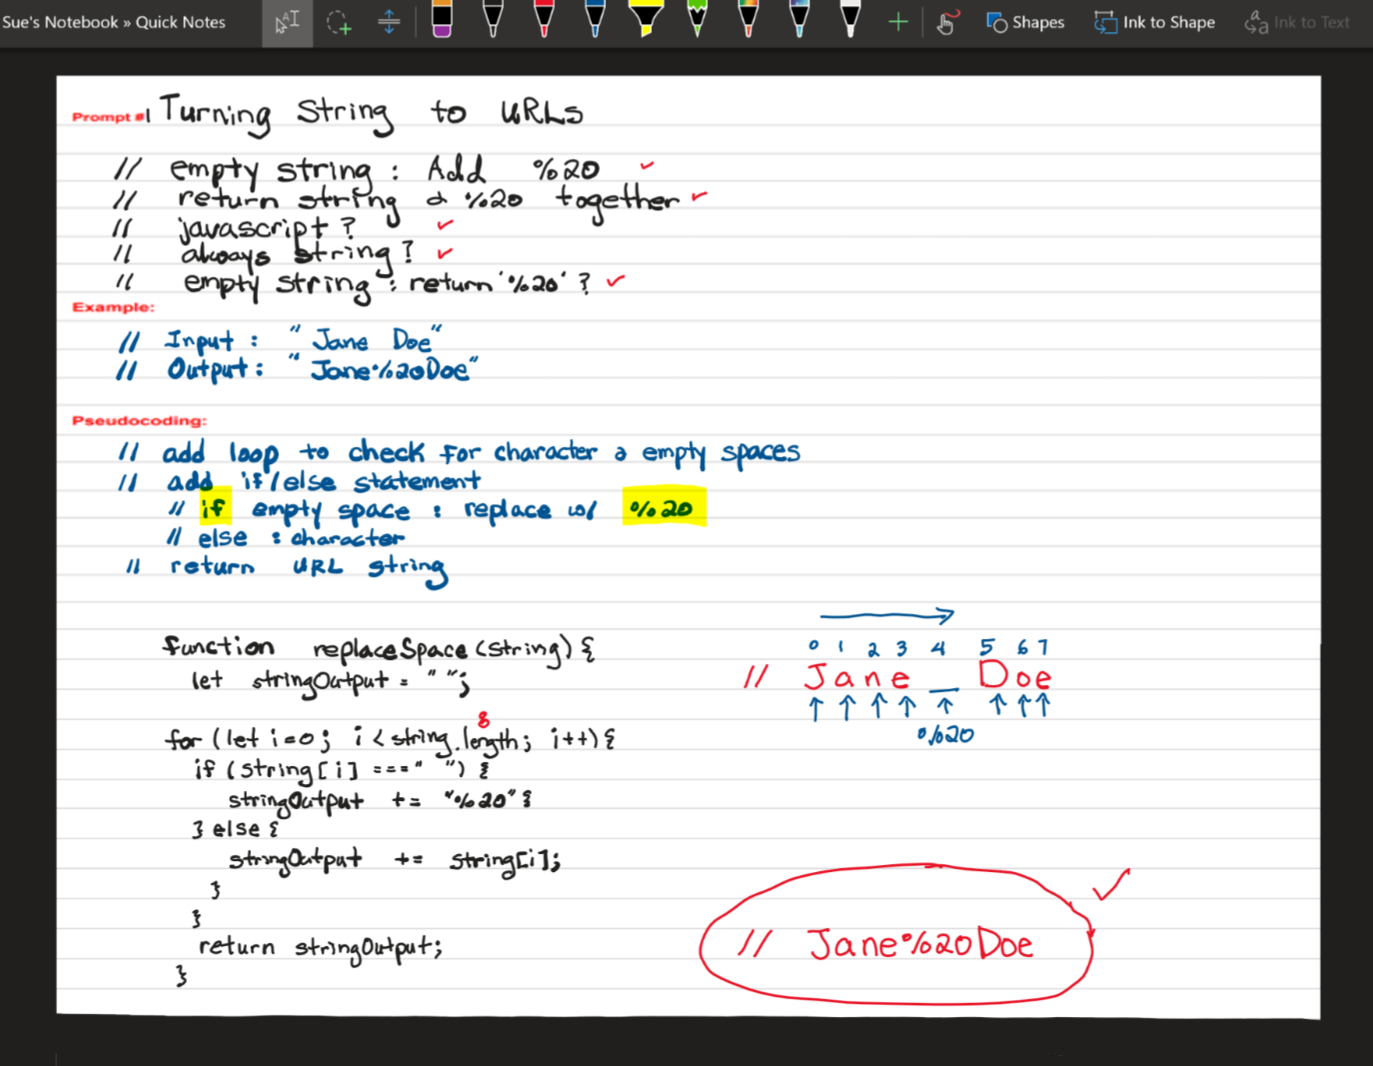 Sue's Notebook » Quick Notes
Shapes
Ink to Shape
Ink to Text
Prompt #1 Turning String to URLs
// empty string : Add %20 ✓
// return string & %20 together ✓
// javascript? ✓
// always string? ✓
// empty string : return '%20' ? ✓
Example:
// Input : "Jane Doe"
// Output : "Jane%20Doe"
Pseudocoding:
// add loop to check for character & empty spaces
// add if/else statement
// if empty space : replace w/ %20
// else : character
// return URL string
function replaceSpace(string) {
let stringOutput = " ";
for (let i=0; i < string.length; i++) {
8
if (string[i] === " ") {
stringOutput += "%20" {
} else {
stringOutput += string[i];
}
}
return stringOutput;
}
0 1 2 3 4 5 6 7
// Jane _ Doe
%20
// Jane%20Doe ✓